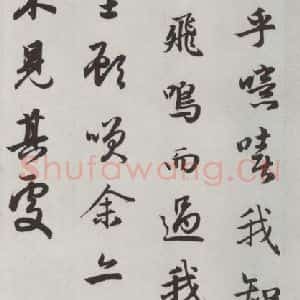 乎噫嘻我知
飛鳴而過我
士顧咲余亦
不見其處
Shufawang.Cn